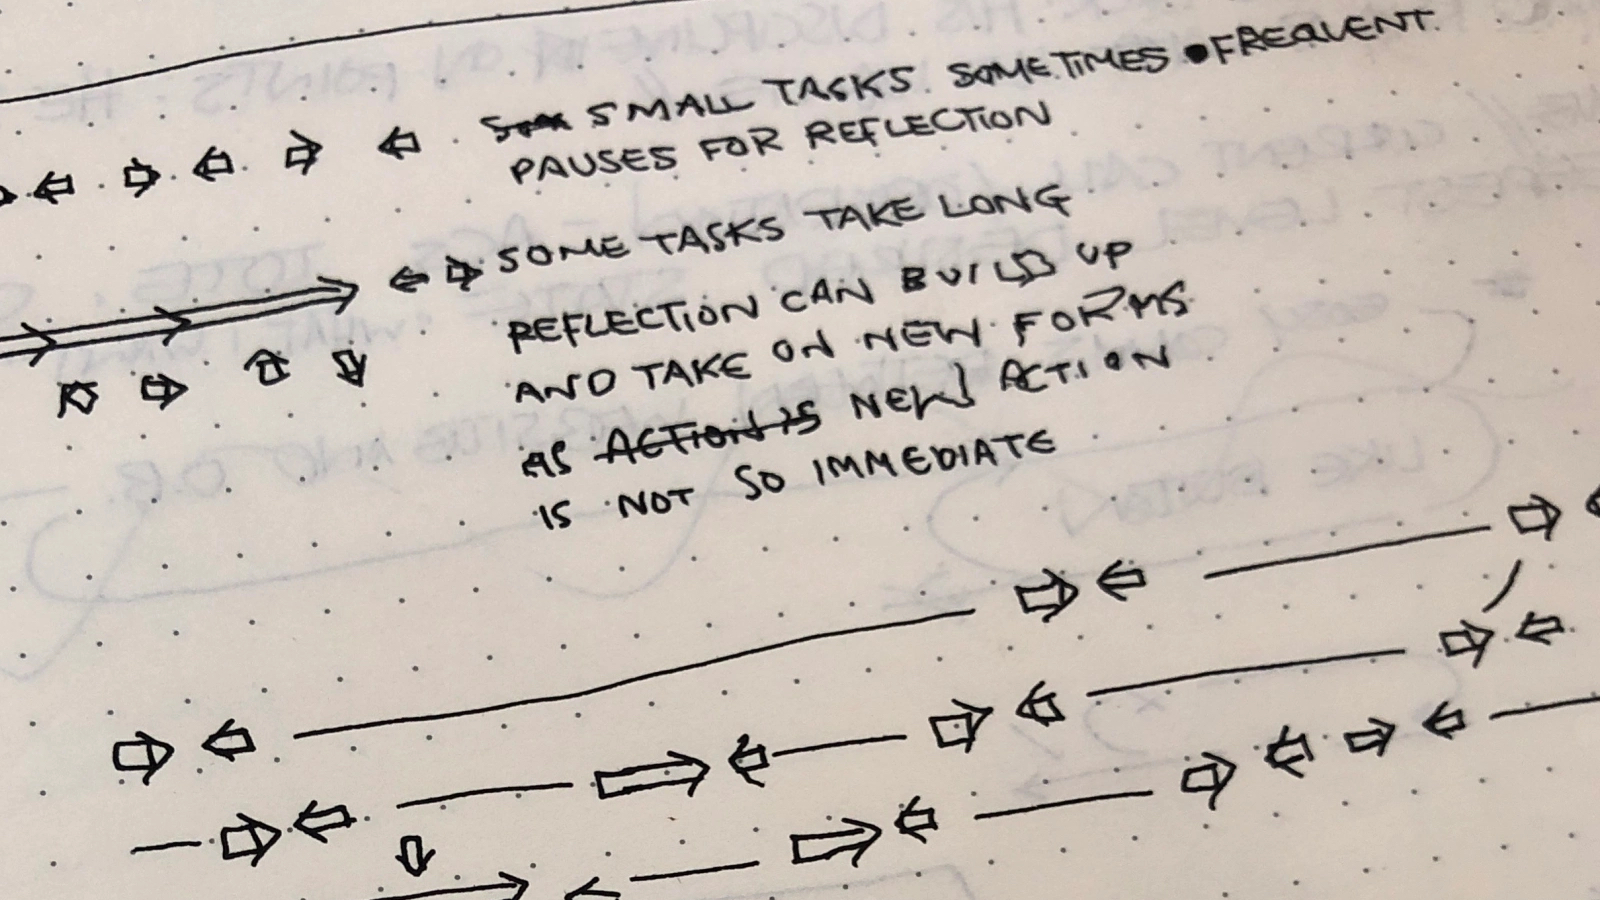 SMALL TASKS SOMETIMES FREQUENT
PAUSES FOR REFLECTION
SOME TASKS TAKE LONG
REFLECTION CAN BUILD UP
AND TAKE ON NEW FORMS
AS ACTION IS NEW ACTION
IS NOT SO IMMEDIATE